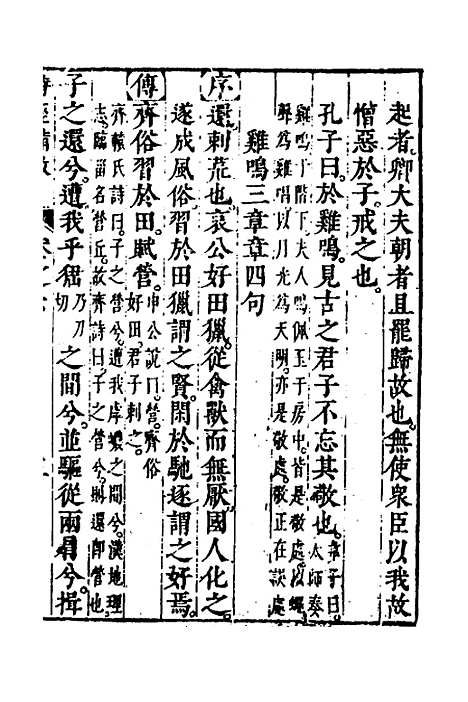 起者。卿大夫朝者且罷歸故也。無使衆臣以我故
憎惡於子。戒之也。
孔子曰。於雞鳴。見古之君子不忘其敬也。章子曰。太師奏
雞鳴于階下。夫人鳴佩玉于房中。皆是敬處。以蠅
聲爲雞鳴。以月光爲天明。亦是敬處。敬正在誤處
雞鳴三章章四句
序還刺荒也。哀公好田獵。從禽獸而無厭。國人化之。
遂成風俗習於田獵謂之賢。閑於馳逐謂之好焉。
傳齊俗習於田。賦營。申公說曰。營。齊俗好田。君子刺之。
齊轅氏詩曰。子之營兮。遭我虖嶩之間兮。漢地理
志。臨甾名營丘。故齊詩曰。子之營兮。則還即營也
子之還兮。遭我乎峱乃刀切之間兮。並驅從兩肩兮。揖